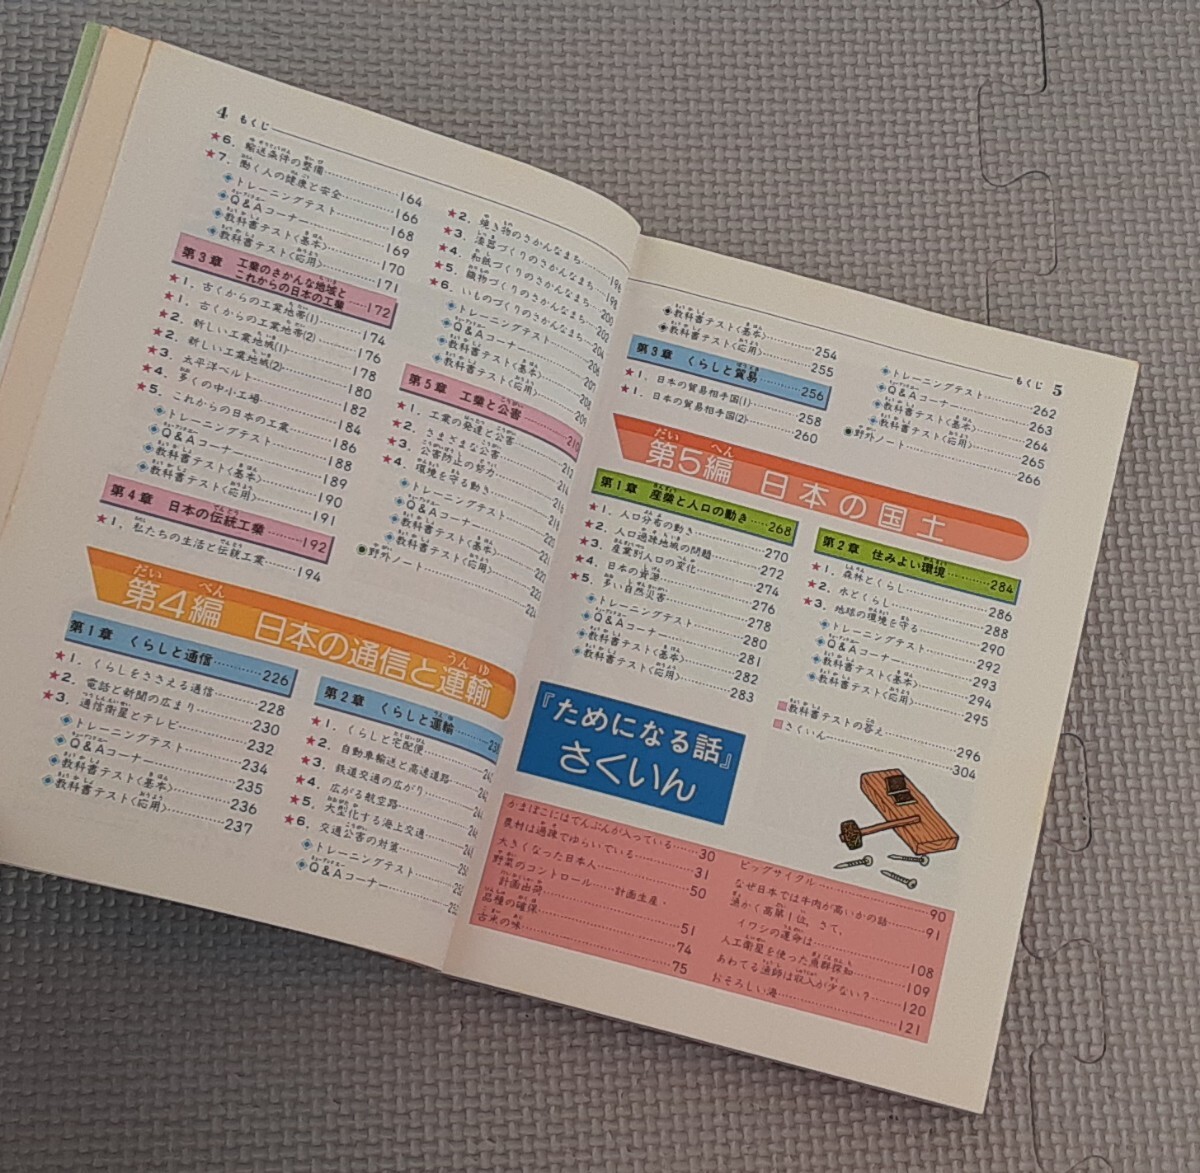 4 もくじ
★6. 輸送条件の整備……164
★7. 働く人の健康と安全……166
◈トレーニングテスト……168
◈Q&Aコーナー……169
◈教科書テスト〈基本〉……170
◈教科書テスト〈応用〉……171
第3章 工業のさかんな地域と
これからの日本の工業……172
★1. 古くからの工業地帯(1)……174
★1. 古くからの工業地帯(2)……176
★2. 新しい工業地域(1)……178
★2. 新しい工業地域(2)……180
★3. 太平洋ベルト……182
★4. 多くの中小工場……184
★5. これからの日本の工業……186
◈トレーニングテスト……188
◈Q&Aコーナー……189
◈教科書テスト〈基本〉……190
◈教科書テスト〈応用〉……191
第4章 日本の伝統工業……192
★1. 私たちの生活と伝統工業……194
★2. 焼き物のさかんなまち……196
★3. 漆器づくりのさかんなまち……198
★4. 和紙づくりのさかんなまち……200
★5. 織物づくりのさかんなまち……202
★6. いものづくりのさかんなまち……204
◈トレーニングテスト……206
◈Q&Aコーナー……207
◈教科書テスト〈基本〉……208
◈教科書テスト〈応用〉……209
第5章 工業と公害……210
★1. 工業の発達と公害
★2. さまざまな公害
★3. 公害防止の努力
★4. 環境を守る動き
◈トレーニングテスト
◈Q&Aコーナー
◈教科書テスト〈基本〉
◈教科書テスト〈応用〉
◉野外ノート
第4編 日本の通信と運輸
第1章 くらしと通信……226
★1. くらしをささえる通信……228
★2. 電話と新聞の広まり……230
★3. 通信衛星とテレビ……232
◈トレーニングテスト……234
◈Q&Aコーナー……235
◈教科書テスト〈基本〉……236
◈教科書テスト〈応用〉……237
第2章 くらしと運輸
★1. くらしと宅配便
★2. 自動車輸送と高速道路
★3. 鉄道交通の広がり
★4. 広がる航空路
★5. 大型化する海上交通
★6. 交通公害の対策
◈トレーニングテスト
◈Q&Aコーナー
もくじ 5
◈教科書テスト〈基本〉……254
◈教科書テスト〈応用〉……255
第3章 くらしと貿易……256
★1. 日本の貿易相手国(1)……258
★1. 日本の貿易相手国(2)……260
◈トレーニングテスト……262
◈Q&Aコーナー……263
◈教科書テスト〈基本〉……264
◈教科書テスト〈応用〉……265
◉野外ノート……266
第5編 日本の国土
第1章 産業と人口の動き……268
★1. 人口分布の動き……270
★2. 人口過疎地域の問題……272
★3. 産業別人口の変化……274
★4. 日本の資源……276
★5. 多い自然災害……278
◈トレーニングテスト……280
◈Q&Aコーナー……281
◈教科書テスト〈基本〉……282
◈教科書テスト〈応用〉……283
第2章 住みよい環境……284
★1. 森林とくらし……286
★2. 水とくらし……288
★3. 地球の環境を守る……290
◈トレーニングテスト……292
◈Q&Aコーナー……293
◈教科書テスト〈基本〉……294
◈教科書テスト〈応用〉……295
教科書テストの答え……296
さくいん……304
『ためになる話』
さくいん
かまぼこにはでんぷんが入っている……30
農村は過疎でゆらいでいる……31
大きくなった日本人……50
野菜のコントロール……計画生産・
計画出荷……51
品種の確保……74
古米の味……75
ビッグサイクル……90
なぜ日本では牛肉が高いかの話……91
漁かく高第1位、さて、
イワシの運命は……108
人工衛星を使った魚群探知……109
あわてる漁師は収入が少ない？……120
おそろしい海……121